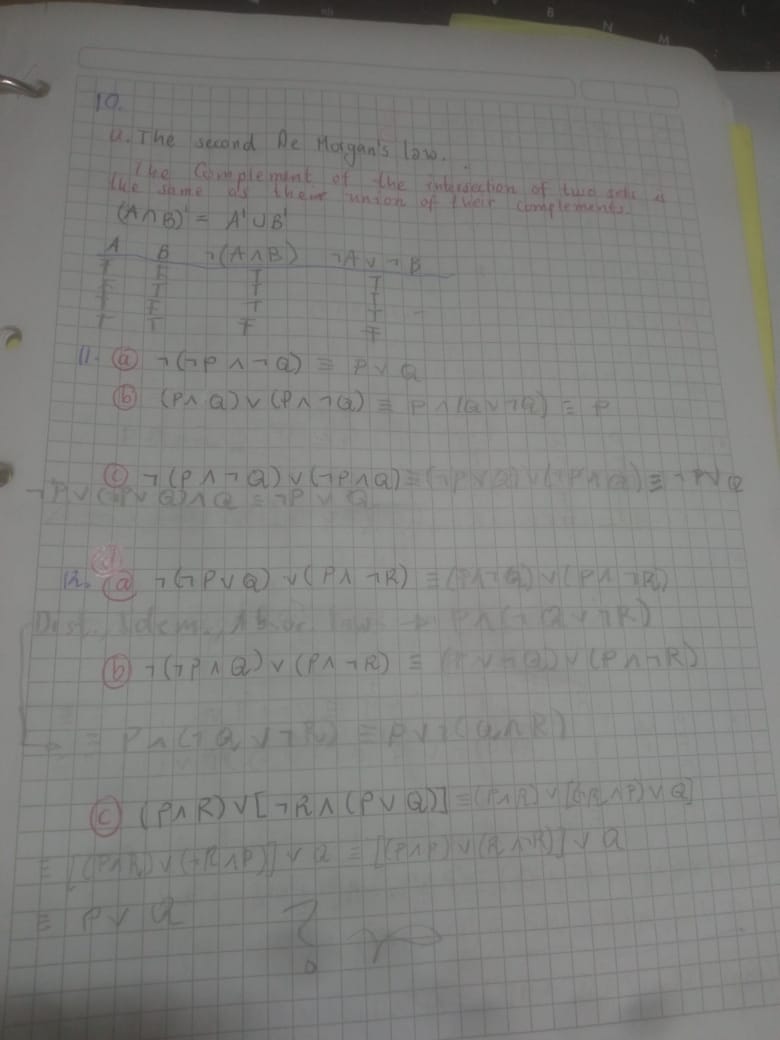 10.
a. The second De Morgan's law.
The Complement of the intersection of two sets is
the same as there union of their complements.
(A∩B)' = A' ∪ B'
A B ¬(A∧B) ¬A ∨ ¬B
F F T T
F T T T
T F T T
T T F F
11. (a) ¬(¬P ∧ ¬Q) ≡ P ∨ Q
(b) (P∧Q) ∨ (P∧¬Q) ≡ P∧(Q∨¬Q) ≡ P
(c) ¬(P∧¬Q) ∨ (¬P∧Q) ≡ (¬P∨Q) ∨ (¬P∧Q) ≡ ¬P∨Q
¬P∨(¬P∨Q)∧Q ≡ ¬P ∨ Q
12. (a) ¬(¬P∨Q) ∨ (P∧¬R) ≡ (P∧¬Q) ∨ (P∧¬R)
P∧(¬Q∨¬R)
(b) ¬(¬P∧Q) ∨ (P∧¬R) ≡ (P∨¬Q) ∨ (P∧¬R)
≡ P∧(¬Q∨¬R) ≡ P∨¬(Q∧R)
(c) (P∧R) ∨ [¬R∧(P∨Q)] ≡ (P∧R) ∨ [(¬R∧P)∨Q]
≡ [(P∧R)∨(¬R∧P)] ∨ Q ≡ [(P∧P)∨(R∧¬R)] ∨ Q
≡ P∨ Q ?